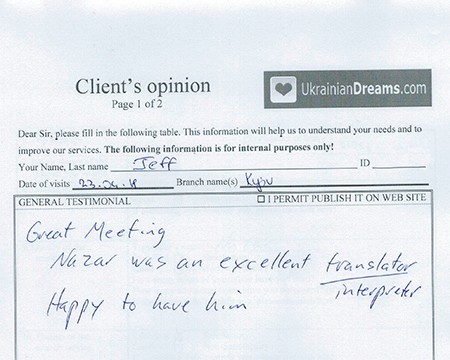 Client's opinion
Page 1 of 2
UkrainianDreams.com
Dear Sir, please fill in the following table. This information will help us to understand your needs and to
improve our services. The following information is for internal purposes only!
Your Name, Last name Jeff ID
Date of visits 23.04.18 Branch name(s) Kyiv
GENERAL TESTIMONIAL ☐ I PERMIT PUBLISH IT ON WEB SITE
Great Meeting
Nazar was an excellent translator
interpreter
Happy to have him